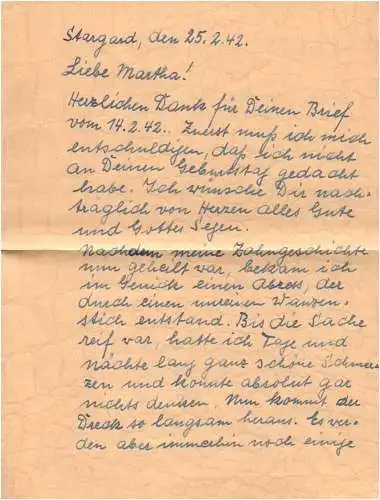 Stargard, den 25.2.42.
Liebe Martha!
Herzlichen Dank für Deinen Brief
vom 14.2.42.. Zuerst muß ich mich
entschuldigen, daß ich nicht
an Deinen Geburtstag gedacht
habe. Ich wünsche Dir nach-
träglich von Herzen alles Gute
und Gottes Segen.
Nachdem meine Zahngeschichte
nun geheilt war, bekam ich
im Genick einen Abzess, der
durch einen unreinen Wanzen-
stich entstand. Bis die Sache
reif war, hatte ich Tage und
nächte lang ganz schöne Schmer-
zen und konnte absolut gar
nichts denken. Nun kommt der
Dreck so langsam heraus. Es wer-
den aber immerhin noch einige